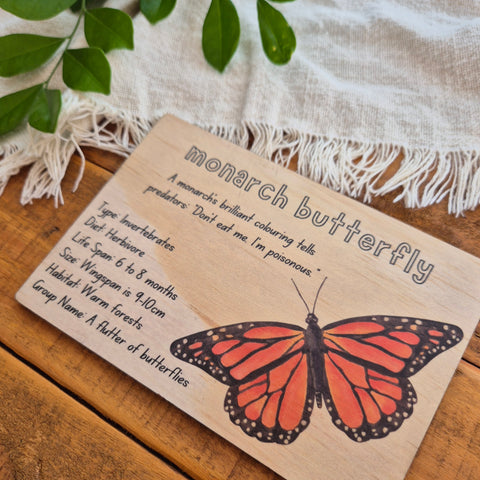 monarch butterfly
A monarch's brilliant colouring tells
predators: "Don't eat me. I'm poisonous."
Type: Invertebrates
Diet: Herbivore
Life Span: 6 to 8 months
Size: Wingspan is 9-10cm
Habitat: Warm forests
Group Name: A flutter of butterflies